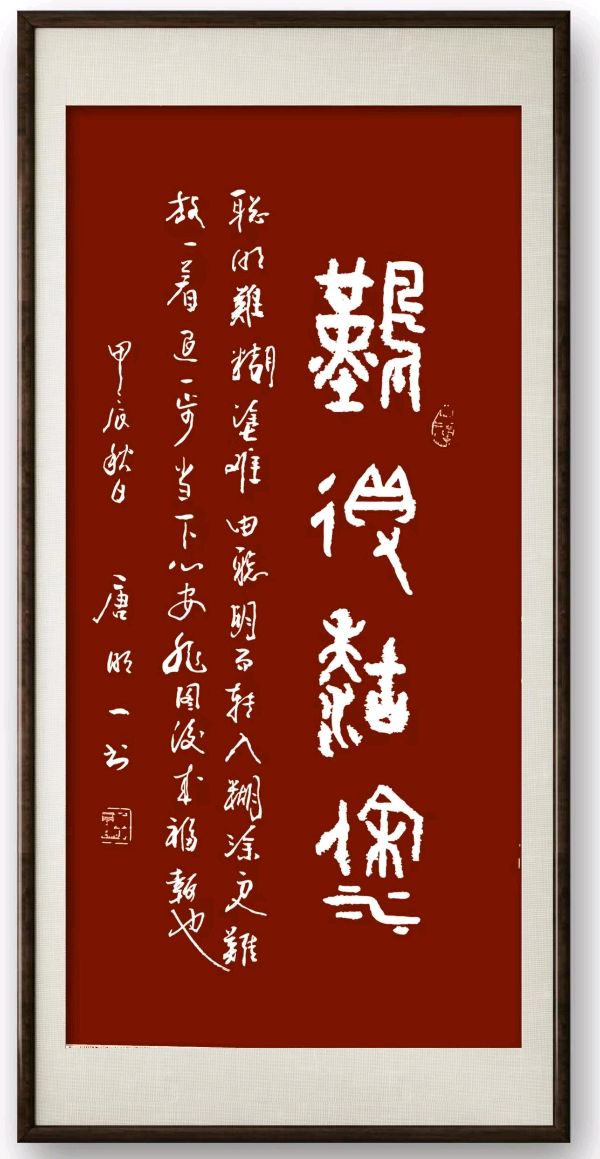 難得糊塗
聪明難糊塗难由聰明而转入糊涂更難
放一着退一步当下心安非图後来福報也
甲辰秋日 唐明一书